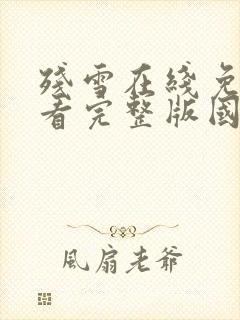 残雪在线免
看完整版国
風扇老爺